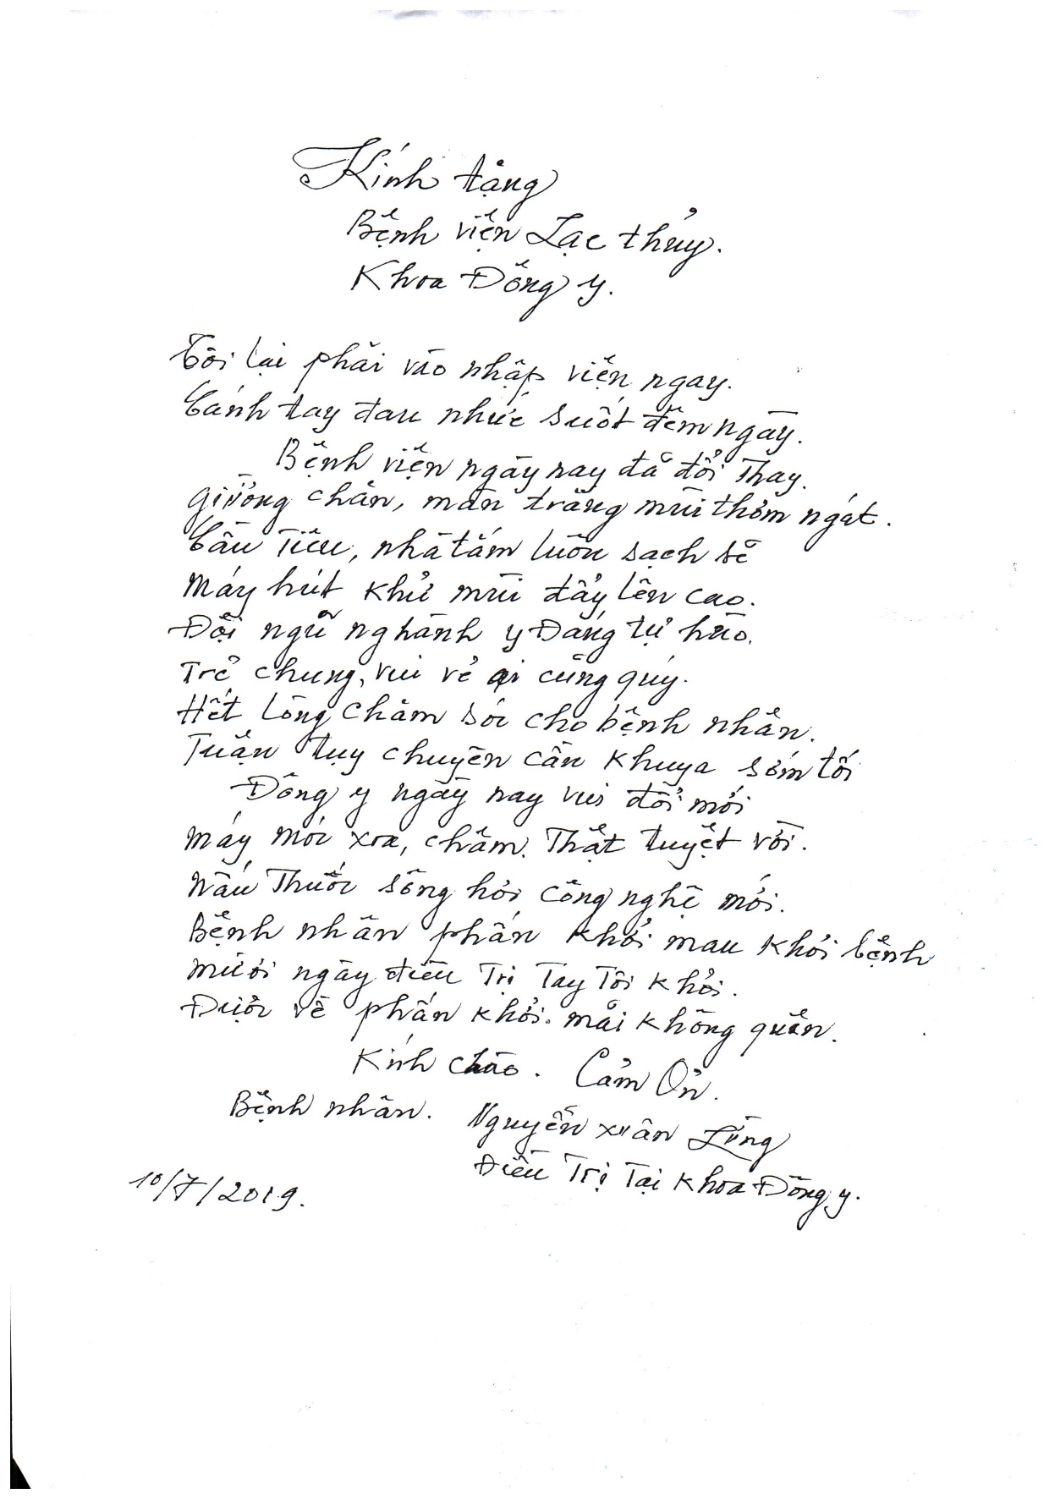 Kính tặng
Bệnh viện Lạc thủy.
Khoa Đông y.
Tôi lại phải vào nhập viện ngay.
Cánh tay đau nhức suốt đêm ngày.
Bệnh viện ngày nay đã đổi Thay.
Giường chăn, màn trắng mùi thơm ngát.
Cầu Tiêu, nhà tắm luôn sạch sẽ
Máy hút khử mùi đẩy lên cao.
Đội ngũ nghành y Đáng tự hào.
Trẻ chung, vui vẻ ai cũng quý.
Hết lòng chăm sóc cho bệnh nhân.
Tuận tụy chuyên cần khuya sớm tối
Đông y ngày nay vui đổi mới
Máy móc xoa, chấm. Thật tuyệt vời.
Nấu Thuốc sông hơi công nghệ mới.
Bệnh nhân phấn khởi mau khỏi bệnh
Mười ngày điều Trị Tay Tôi khỏi.
Được về phấn khởi. mãi không quên.
Kính chào. Cảm Ơn.
Bệnh nhân. Nguyễn xuân Lùng
Điều Trị Tại khoa Đông y.
10/7/2019.